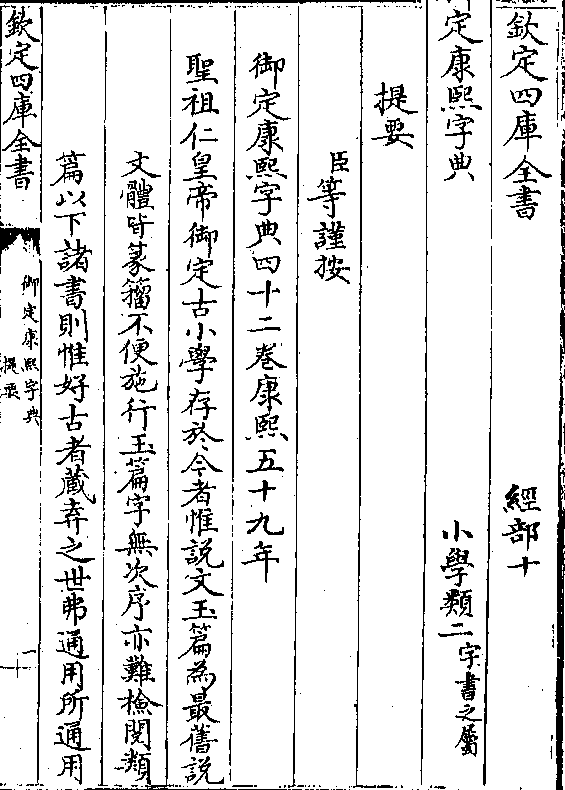 欽定四庫全書 經部十
定康熙字典 小學類二字書之屬
提要
臣等謹按
御定康熙字典四十二卷康熙五十九年
聖祖仁皇帝御定古小學存於今者惟説文玉篇為最舊説
文體皆篆籀不便施行玉篇字無次序亦難檢閱類
篇以下諸書則惟好古者藏弆之世弗通用所通用
欽定四庫全書
御定康熙字典
提要
一